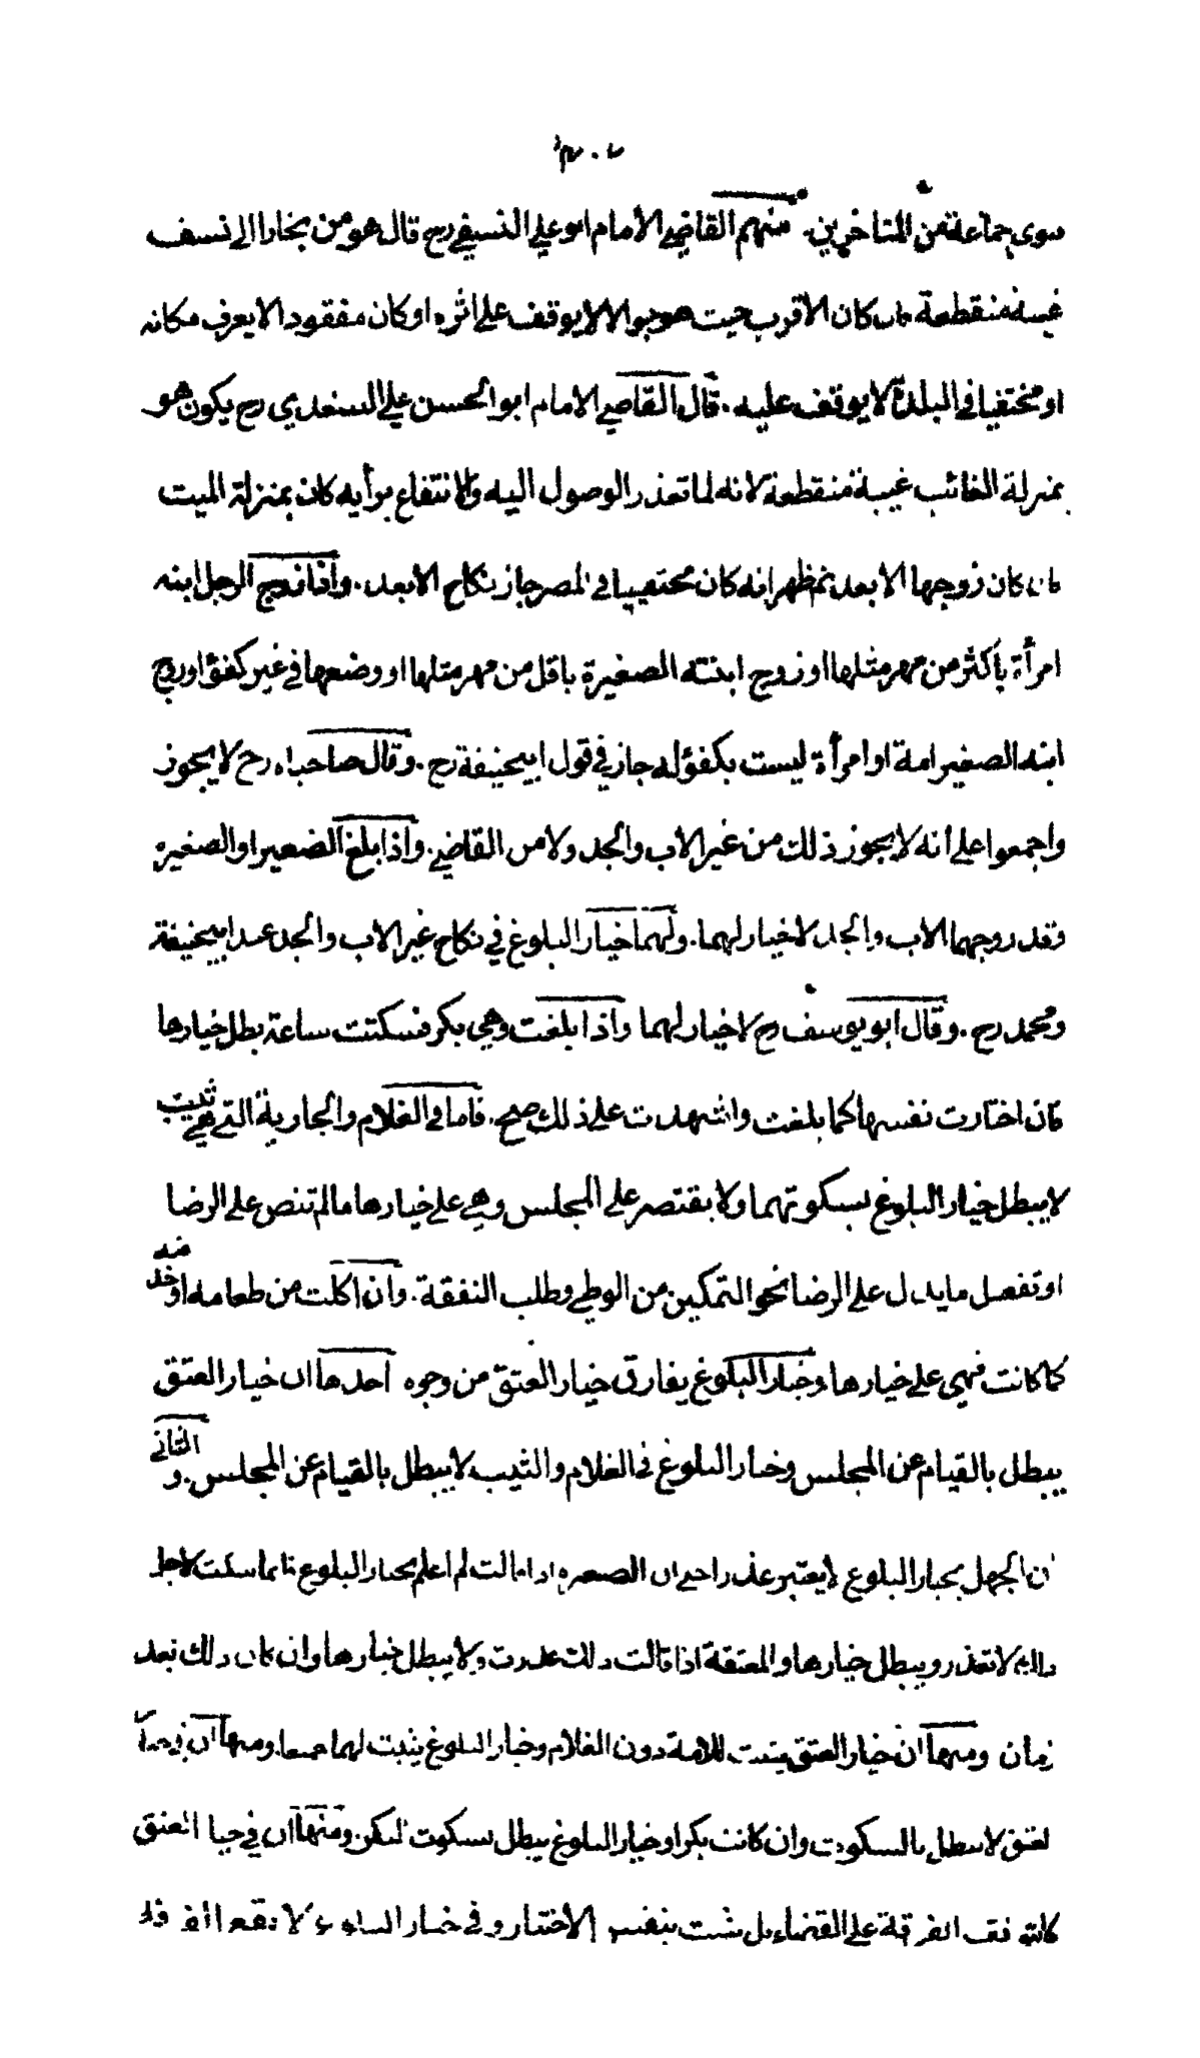 ٣٠٧
سوى جماعة من المتاخرين. منهم القاضي الأمام ابو علي النسيفي رح قال هو من بخارا الى نسف
غيبة منقطعة فان كان الاقرب حيث هو جوالا لا يوقف على اثره او كان مفقودا لا يعرف مكانه
او مختفيا في البلدة لا يوقف عليه. قال القاضي الامام ابو الحسن علي السغدي رح يكون هو
بمنزلة الغائب غيبة منقطعة لانه لما تعذر الوصول اليه والانتفاع برأيه كان بمنزلة الميت
فان كان زوجها الابعد ثم ظهر انه كان مختفيا في المصر جاز نكاح الابعد. واذا زوج الرجل ابنه
امرأة باكثر من مهر مثلها او زوج ابنته الصغيرة باقل من مهر مثلها او وضعها في غير كفؤ او زوج
ابنه الصغير امة او امرأة ليست بكفؤ له جاز في قول ابيحنيفة رح. وقال صاحباه رح لا يجوز
واجمعوا على انه لا يجوز ذلك من غير الاب والجد ولا من القاضي. واذا بلغ الصغير او الصغيرة
وقد زوجهما الاب والجد لا خيار لهما. ولهما خيار البلوغ في نكاح غير الاب والجد عند ابيحنيفة
ومحمد رح. وقال ابو يوسف رح لا خيار لهما واذا بلغت وهي بكر فسكتت ساعة بطل خيارها
فان اختارت نفسها كما بلغت واشهدت على ذلك صح. فاما في الغلام والجارية التي هي ثيب
لا يبطل خيار البلوغ بسكوتهما ولا يقتصر على المجلس وهي على خيارها ما لم تنص على الرضا
او تفعل ما يدل على الرضا نحو التمكين من الوطي وطلب النفقة. وان اكلت من طعامه او خدمته
كما كانت فهي على خيارها وخيار البلوغ يفارق خيار العتق من وجوه احدها ان خيار العتق
يبطل بالقيام عن المجلس وخيار البلوغ في الغلام والثيب لا يبطل بالقيام عن المجلس. و الثاني
ان الجهل بخيار البلوغ لا يعتبر عذرا حتى ان الصغيرة اذا قالت لم اعلم بخيار البلوغ فانما سكت لاجل
ذلك لا تعذر ويبطل خيارها والمعتقة اذا قالت ذلك عذرت ولا يبطل خيارها وان كان ذلك بعد
زمان ومنها ان خيار العتق يثبت للامة دون الغلام وخيار البلوغ يثبت لهما جميعا. ومنها ان
لعتق لا يبطل بالسكوت وان كانت بكرا وخيار البلوغ يبطل بسكوت البكر. ومنها ان في خيا العتق
الفرقة على القضاء بل يثبت بنفس الاختيار وفي خيار البلوغ لا تقع